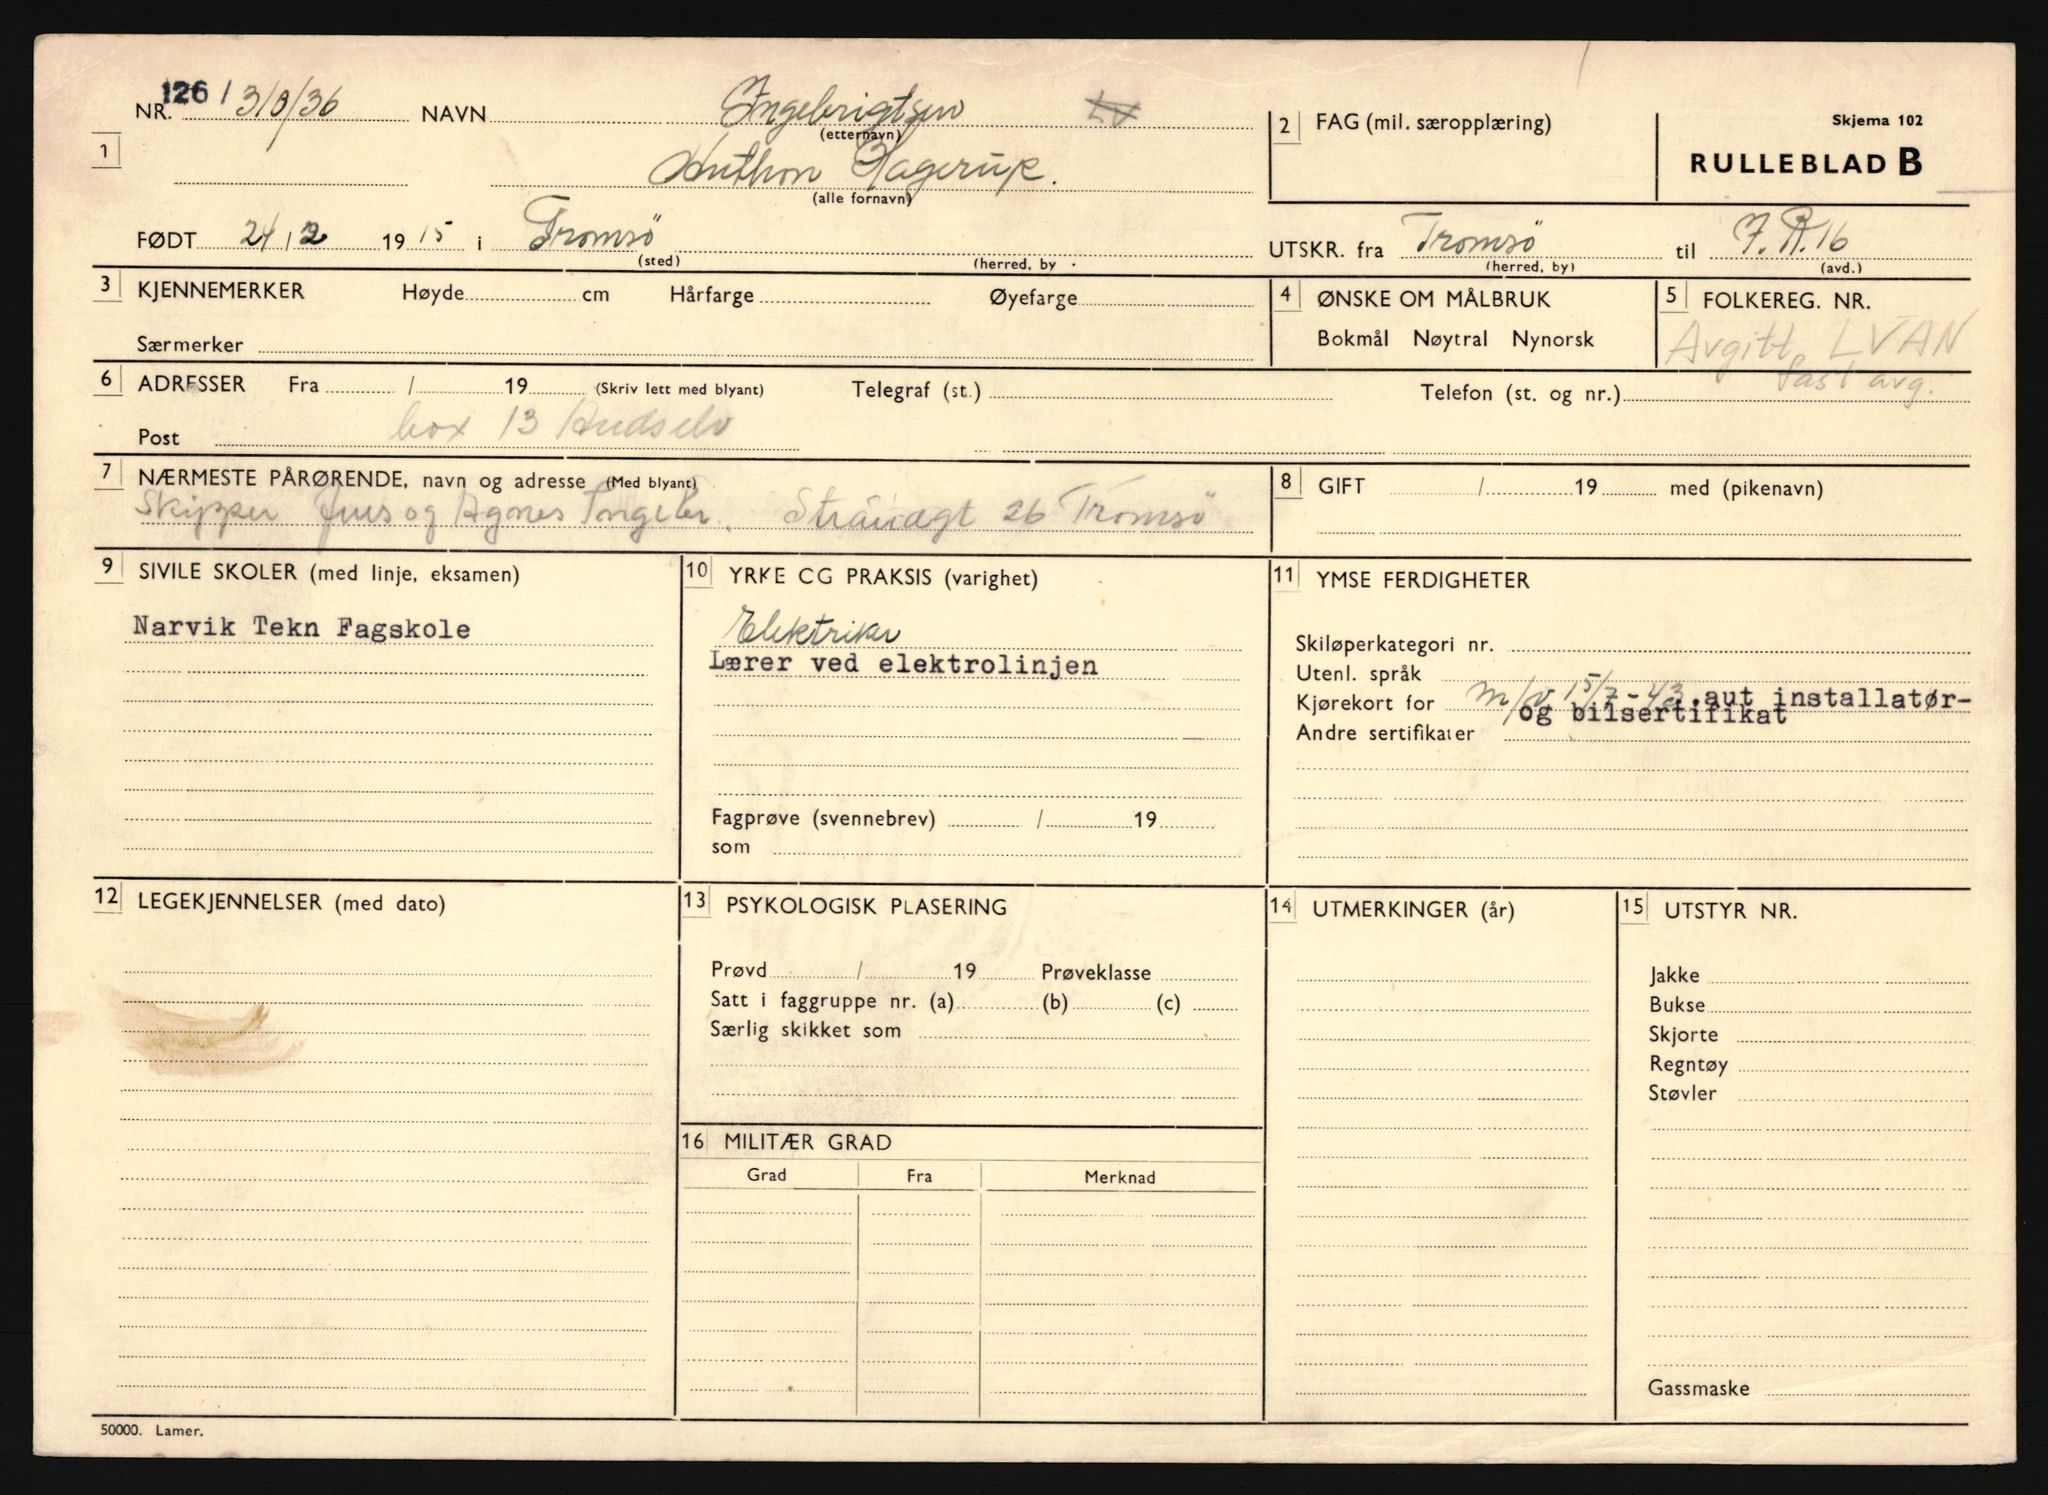 NR. 126 / 318/36 NAVN Ingebrigtsen
(etternavn)
1
Anthon Hagerup.
(alle fornavn)
FØDT 24/2 1915 i Tromsö
(sted) (herred, by
2 FAG (mil. særopplæring)
Skjema 102
RULLEBLAD B
UTSKR. fra Tromsö til I.R.16
(herred, by) (avd.)
3 KJENNEMERKER Høyde cm Hårfarge Øyefarge
Særmerker
4 ØNSKE OM MÅLBRUK
Bokmål Nøytral Nynorsk
5 FOLKEREG. NR.
Avgitt LVAN
fast avg.
6 ADRESSER Fra / 19 (Skriv lett med blyant) Telegraf (st.) Telefon (st. og nr.)
Post box 13 Andselv
7 NÆRMESTE PÅRØRENDE, navn og adresse (Med blyant)
Skipper Jens og Agnes Ingebr. 26 Tromsö
8 GIFT / 19 med (pikenavn)
9 SIVILE SKOLER (med linje, eksamen)
Narvik Tekn Fagskole
10 YRKE OG PRAKSIS (varighet)
Elektriker
Lærer ved elektrolinjen
Fagprøve (svennebrev) / 19
som
11 YMSE FERDIGHETER
Skiløperkategori nr.
Utenl. språk
Kjørekort for m/v 15/7-43. aut installatør-
og bilsertifikat
Andre sertifikater
12 LEGEKJENNELSER (med dato)
13 PSYKOLOGISK PLASERING
Prøvd / 19 Prøveklasse
Satt i faggruppe nr. (a) (b) (c)
Særlig skikket som
14 UTMERKINGER (år)
15 UTSTYR NR.
Jakke
Bukse
Skjorte
Regntøy
Støvler
Gassmaske
16 MILITÆR GRAD
Grad Fra Merknad
50000. Lamer.